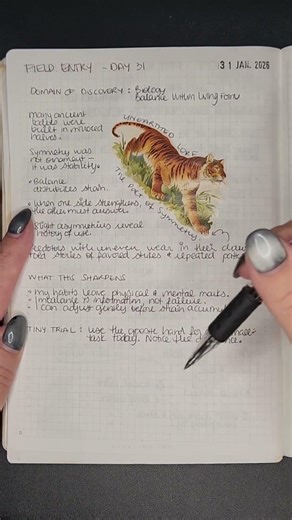 FIELD ENTRY - DAY 31
31 JAN. 2026
DOMAIN OF DISCOVERY: Biology
Balance Within Living Form
Many ancient
bodies were
built in mirrored
halves.
UNEARTHED LORE
THE POET OF SYMMETRY
Symmetry was
not ornament -
it was stability.
• Balance
distributes strain.
• When one side strengthens,
the other must answer.
Slight asymmetries reveal
history of use.
with uneven wear in their
told stories of favored sides + repeated
WHAT THIS SHARPENS
• my habits leave physical + mental marks.
• Imbalance is information, not failure.
• I can adjust gently before strain
TINY TRIAL: use the opposite hand for
task today. Notice the